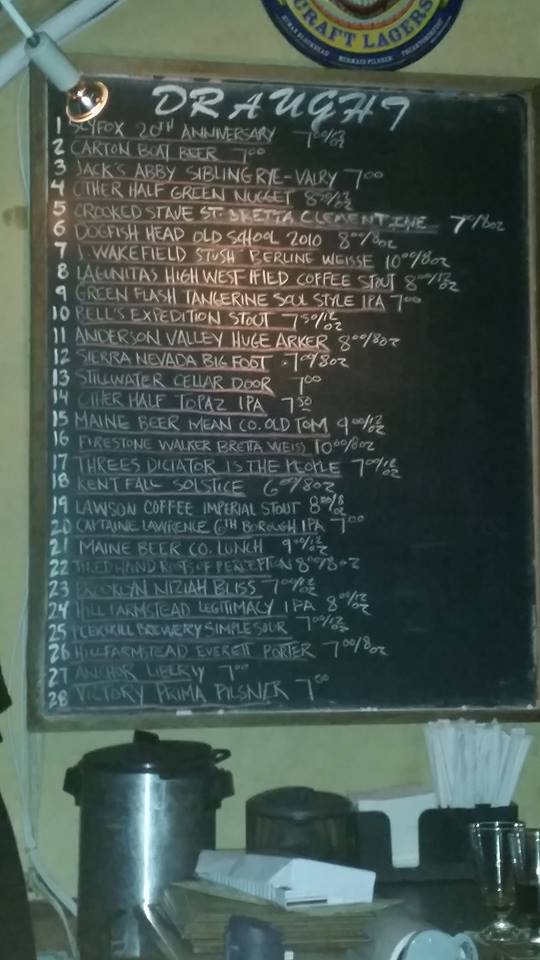 CRAFT LAGERS
HUMAN BLOCKHEAD MERMAID PILSNER
DRAUGHT
1 SLYFOX 20TH ANNIVERSARY 700/12oz
2 CARTON BOAT BEER 700
3 JACK'S ABBY SIBLING RYE-VALRY 700
4 OTHER HALF GREEN NUGGET 850/12oz
5 CROOKED STAVE ST. BRETTA CLEMENTINE 700/8oz
6 DOGFISH HEAD OLD SCHOOL 2010 800/8oz
7 J. WAKEFIELD STUSH BERLINE WEISSE 1000/8oz
8 LAGUNITAS HIGH WEST IFIED COFFEE STOUT 800/12oz
9 GREEN FLASH TANGERINE SOUL STYLE IPA 700
10 BELL'S EXPEDITION STOUT 750/12oz
11 ANDERSON VALLEY HUGE ARKER 800/8oz
12 SIERRA NEVADA BIG FOOT 700/8oz
13 STILLWATER CELLAR DOOR 700
14 OTHER HALF TOPAZ IPA 750
15 MAINE BEER MEAN CO. OLD TOM 900/12oz
16 FIRESTONE WALKER BRETTA WEISS 1000/8oz
17 THREES DICIATOR IS THE PEOPLE 700/12oz
18 KENT FALL SOLSTICE 600/8oz
19 LAWSON COFFEE IMPERIAL STOUT 800/8oz
20 CAPTAINE LAWRENCE 6TH BOROUGH IPA 700
21 MAINE BEER CO. LUNCH 900/12oz
22 TIRED HAND ROOTS OF PERCEPTION 800/8oz
23 BROOKLYN NIZIAH BLISS 700/12oz
24 HILL FARMSTEAD LEGITIMACY IPA 800/12oz
25 PEEKSKILL BREWERY SIMPLE SOUR 700/12oz
26 HILLFARMSTEAD EVERETT PORTER 700/8oz
27 ANCHOR LIBERTY 700
28 VICTORY PRIMA PILSNER 700